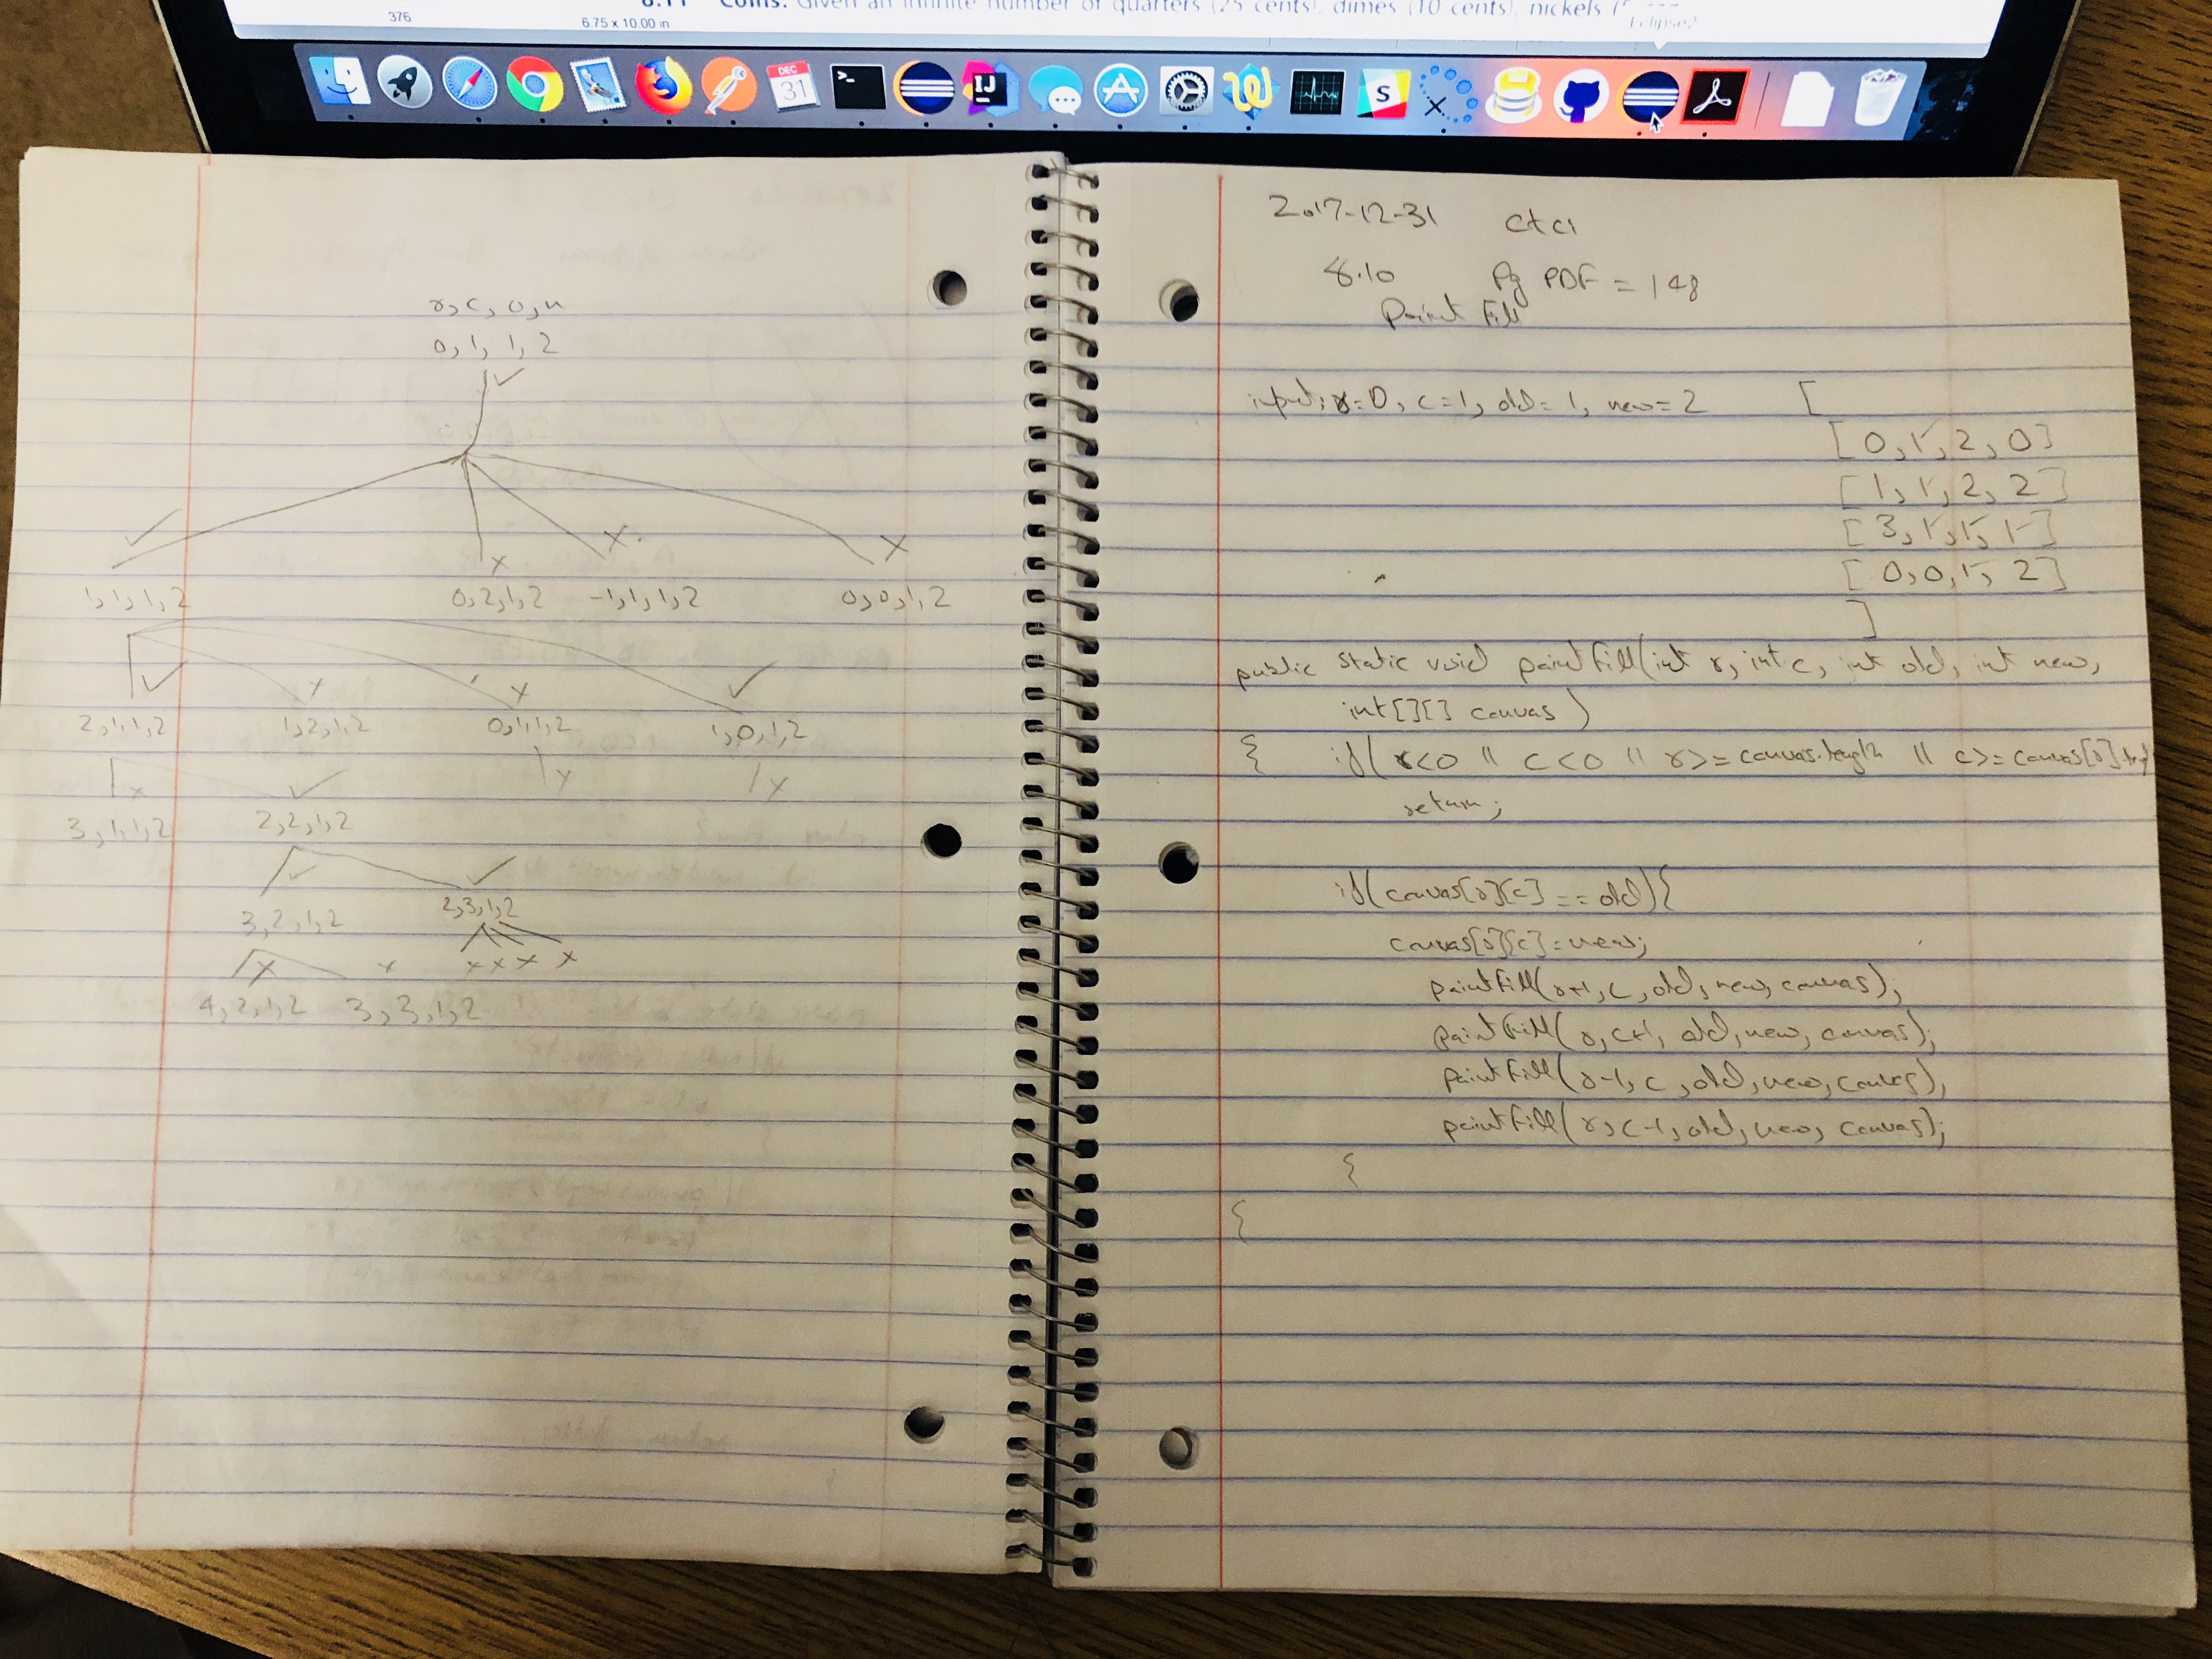 8.11 Coins: Given an infinite number of quarters (25 cents), dimes (10 cents), nickels (5
376
6.75 x 10.00 in
Eclipse2
DEC
31
IJ
S
r, c, o, n
0, 1, 1, 2
1, 1, 1, 2 0, 2, 1, 2 -1, 1, 1, 2 0, 0, 1, 2
2, 1, 1, 2 1, 2, 1, 2 0, 1, 1, 2 1, 0, 1, 2
3, 1, 1, 2 2, 2, 1, 2
3, 2, 1, 2 2, 3, 1, 2
x x x x
4, 2, 1, 2 3, 3, 1, 2
2017-12-31 CtCI
8.10 Pg PDF = 148
Paint Fill
input: r=0, c=1, old=1, new=2 [
[0, 1, 2, 0]
[1, 1, 2, 2]
[3, 1, 1, 1]
[0, 0, 1, 2]
]
public static void paintFill(int r, int c, int old, int new,
int[][] canvas)
{ if( r<0 || c<0 || r>=canvas.length || c>=canvas[0].
return;
if(canvas[r][c] == old){
canvas[r][c]=new;
paintFill(r+1, c, old, new, canvas);
paintFill(r, c+1, old, new, canvas);
paintFill(r-1, c, old, new, canvas);
paintFill(r, c-1, old, new, canvas);
}
}